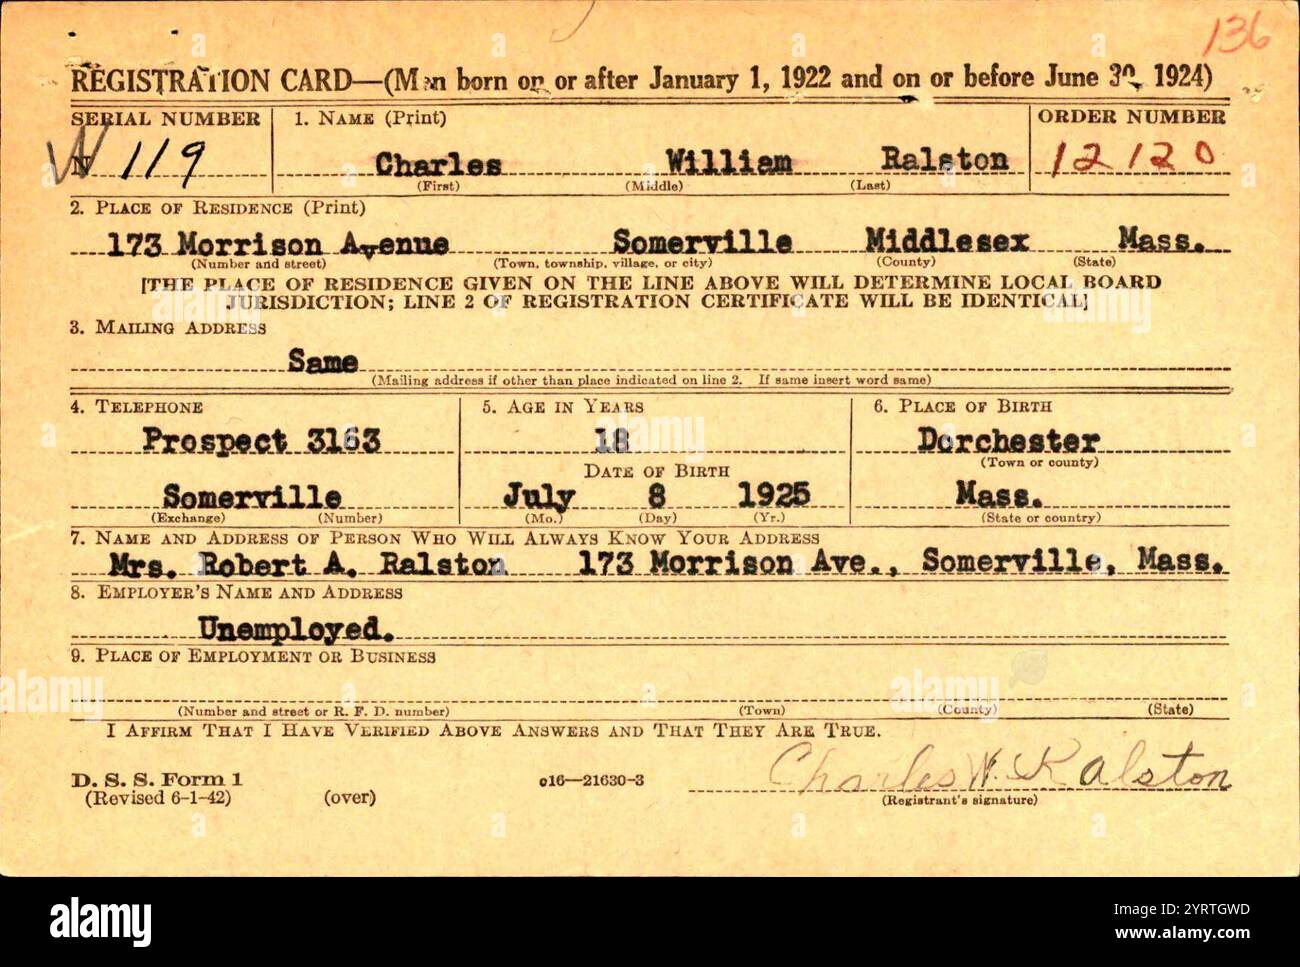 136
REGISTRATION CARD—(Men born on or after January 1, 1922 and on or before June 30, 1924)
SERIAL NUMBER
1. NAME (Print)
ORDER NUMBER
N 119
Charles William Ralston
12120
(First) (Middle) (Last)
2. PLACE OF RESIDENCE (Print)
173 Morrison Avenue Somerville Middlesex Mass.
(Number and street) (Town, township, village, or city) (County) (State)
[THE PLACE OF RESIDENCE GIVEN ON THE LINE ABOVE WILL DETERMINE LOCAL BOARD
JURISDICTION; LINE 2 OF REGISTRATION CERTIFICATE WILL BE IDENTICAL]
3. MAILING ADDRESS
Same
(Mailing address if other than place indicated on line 2. If same insert word same)
4. TELEPHONE
5. AGE IN YEARS
6. PLACE OF BIRTH
Prospect 3163
18
Dorchester
(Town or county)
DATE OF BIRTH
Somerville
July 8 1925
Mass.
(Exchange) (Number)
(Mo.) (Day) (Yr.)
(State or country)
7. NAME AND ADDRESS OF PERSON WHO WILL ALWAYS KNOW YOUR ADDRESS
Mrs. Robert A. Ralston 173 Morrison Ave., Somerville, Mass.
8. EMPLOYER'S NAME AND ADDRESS
Unemployed.
9. PLACE OF EMPLOYMENT OR BUSINESS
(Number and street or R. F. D. number) (Town) (County) (State)
I AFFIRM THAT I HAVE VERIFIED ABOVE ANSWERS AND THAT THEY ARE TRUE.
D. S. S. Form 1
(Revised 6-1-42)
(over)
c16—21630-3
Charles W. Ralston
(Registrant's signature)
alamy
Image ID: 2YRTGWD
www.alamy.com